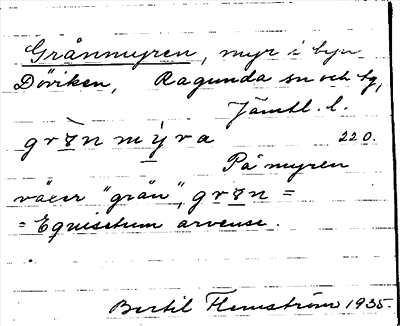 Grånmyren, myr i byn
Döviken, Ragunda sn och tg,
Jämtl. l.
grån mỳra 220.
På myren
växer "grån", grån =
= Equisetum arvense.
Bertil Flemström 1935.